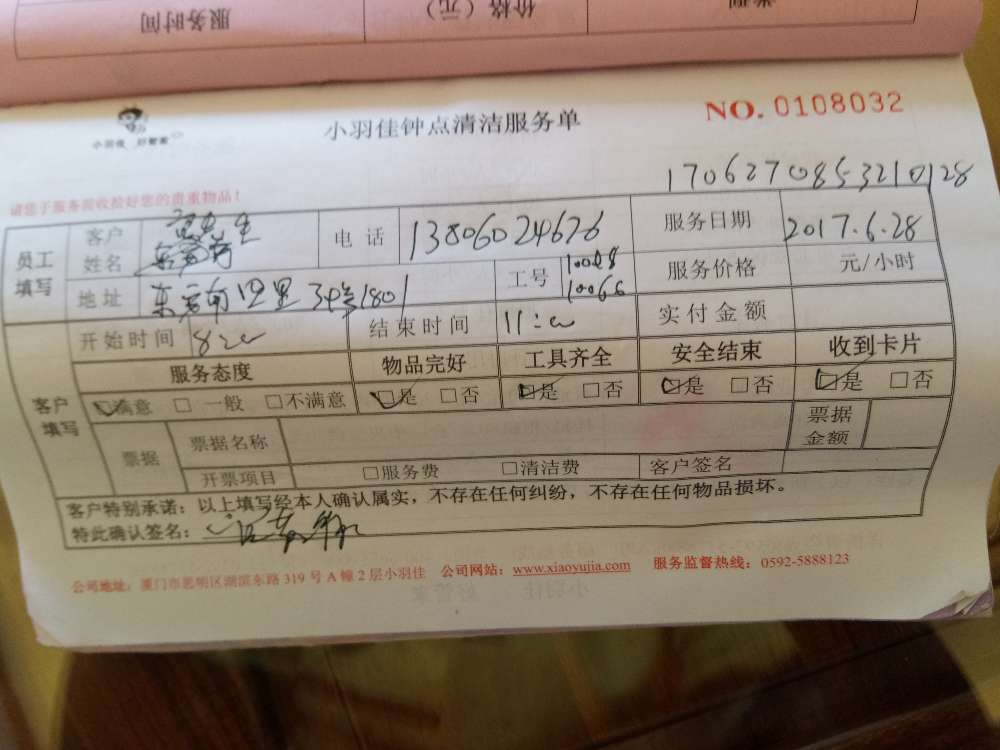 服务时间
价格（元）
类型
小羽佳 好管家
小羽佳钟点清洁服务单
NO. 0108032
1706270853210128
请您于服务前收捡好您的贵重物品！
员工填写
客户姓名
先生
电话
13806024676
服务日期
2017.6.28
地址
34号1801
工号
10066
服务价格
元/小时
开始时间
8:00
结束时间
11:00
实付金额
客户填写
服务态度
物品完好
工具齐全
安全结束
收到卡片
☑满意 □ 一般 □不满意
☑是 □否
☑是 □否
☑是 □否
☑是 □否
票据
票据名称
票据金额
开票项目
□服务费
□清洁费
客户签名
客户特别承诺：以上填写经本人确认属实，不存在任何纠纷，不存在任何物品损坏。
特此确认签名：
公司地址：厦门市思明区湖滨东路 319 号 A 幢 2 层小羽佳 公司网站：www.xiaoyujia.com 服务监督热线：0592-5888123